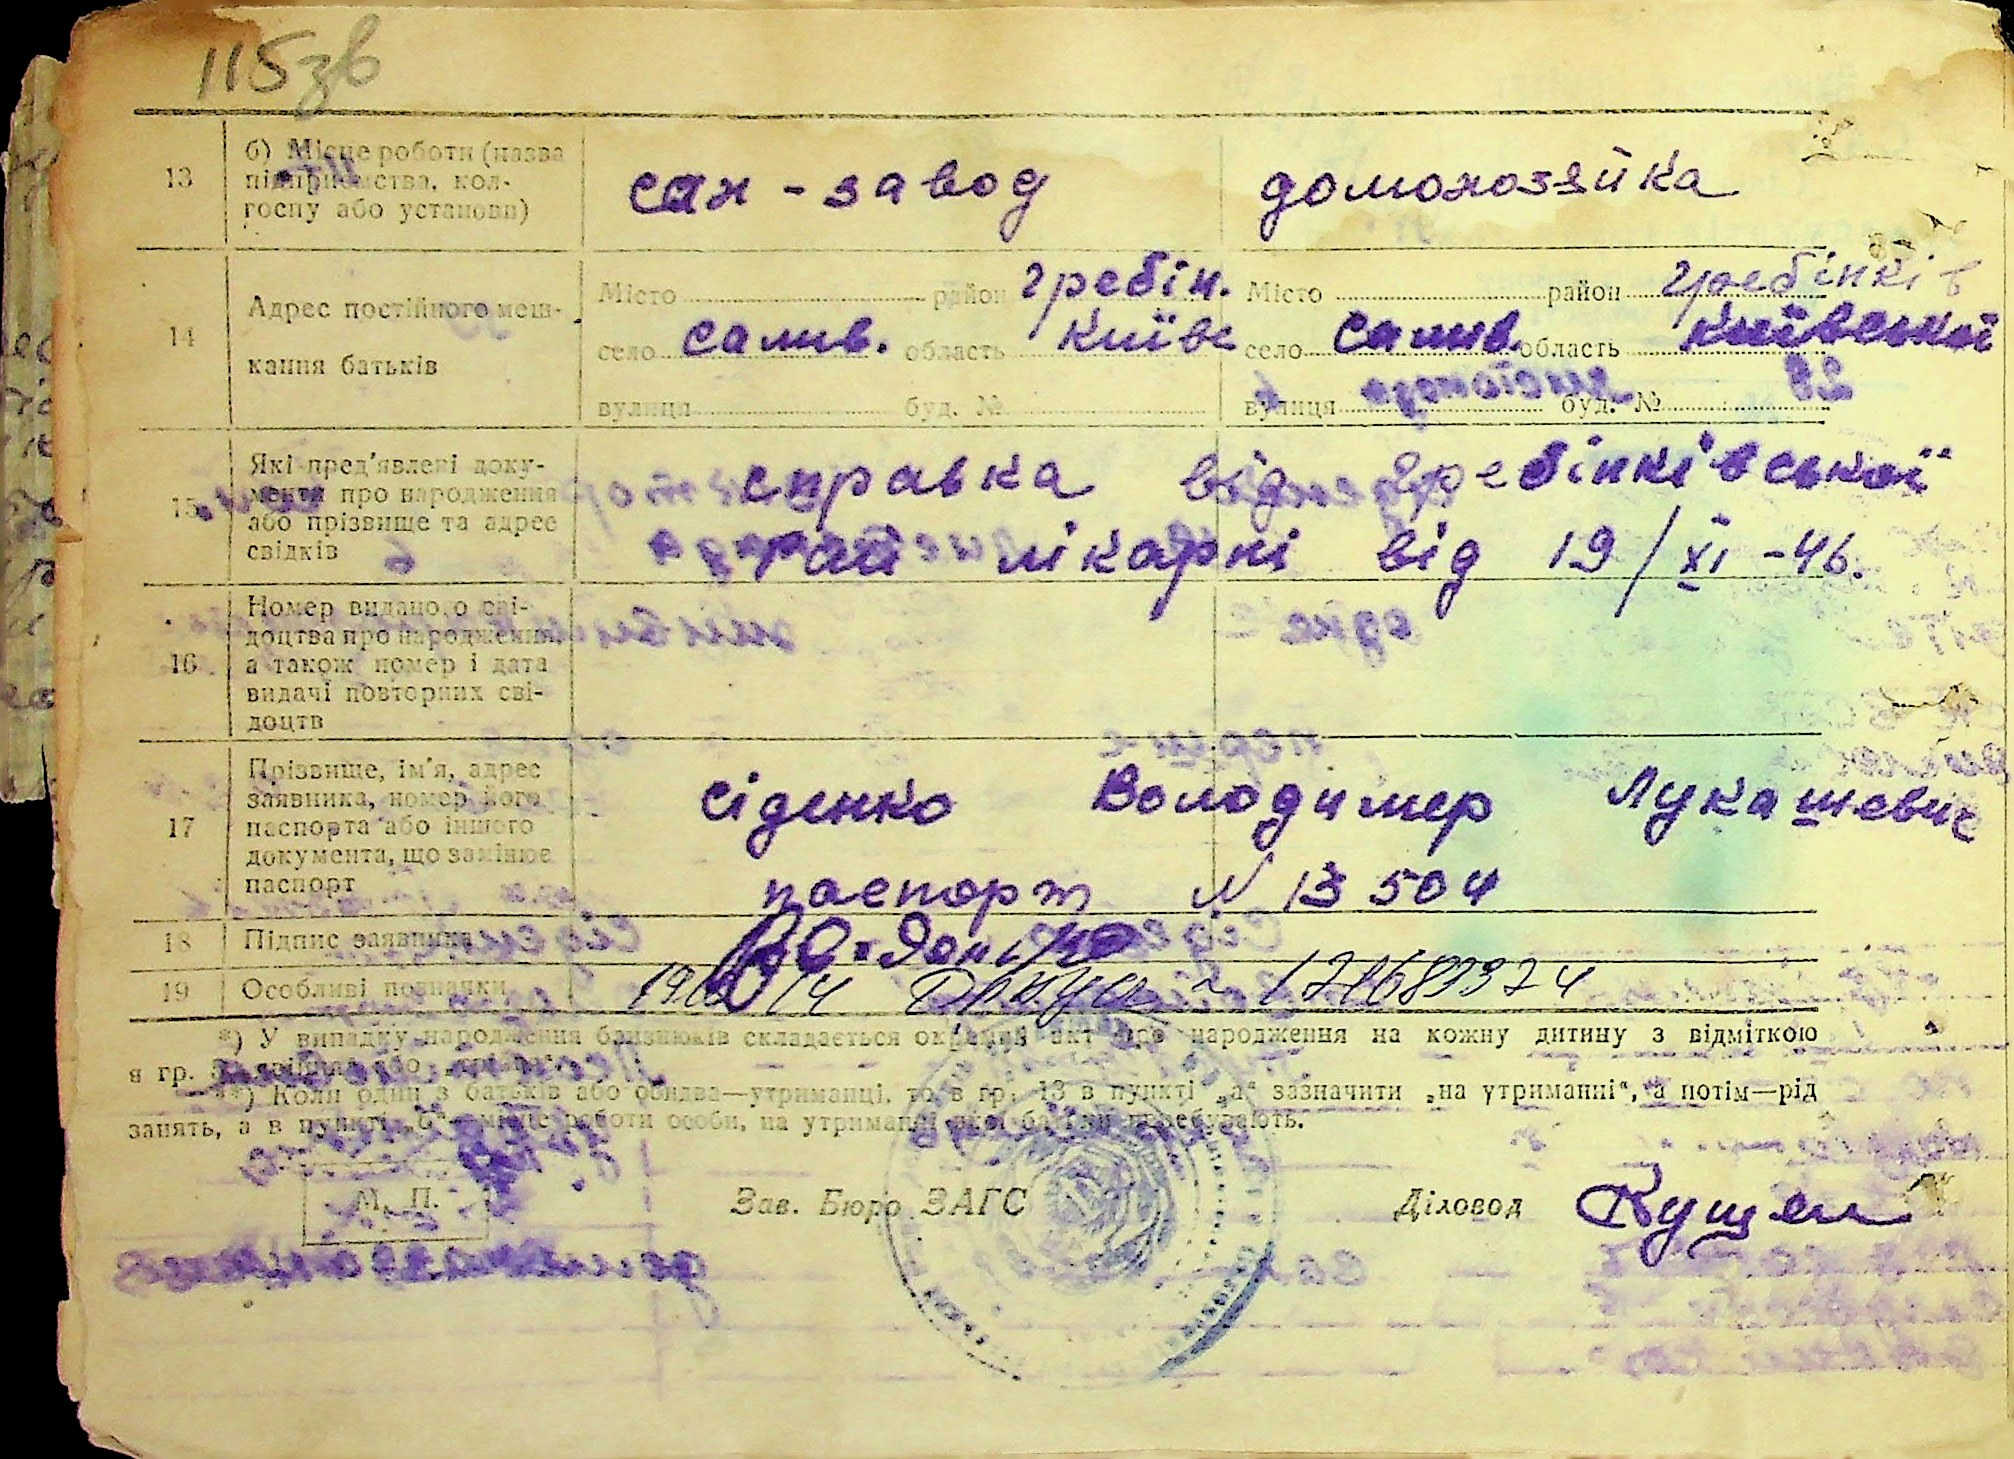 115зв
13
б) Місце роботи (назва
підприємства, кол-
госпу або установи)
сан-завод
домохозяйка
14
Адрес постійного меш-
кання батьків
Місто район Гребін.
село Салив. область Київс
вулиця буд. №
Місто район Гребінків
село Салив. область Київської
вулиця буд. №
15
Які пред'явлені доку-
менти про народження
або прізвище та адрес
свідків
справка від Гребінківської
рай лікарні від 19/XI-46.
16
Номер виданого сві-
доцтва про народження,
а також номер і дата
видачі повторних сві-
доцтв
17
Прізвище, ім'я, адрес
заявника, номер його
паспорта або іншого
документа, що замінює
паспорт
Сіденко Володимер Лукашевич
паспорт N 13504
18
Підпис заявника
19
Особливі позначки
*) У випадку народження близнюків складається окремий акт про народження на кожну дитину з відміткою
в гр.
**) Коли один з батьків або обидва—утриманці, то в гр. 13 в пункті „а“ зазначити „на утриманні“, а потім—рід
занять, а в пункті „б“—місце роботи особи, на утриманні якої батьки перебувають.
М. П.
Зав. Бюро ЗАГС
Діловод